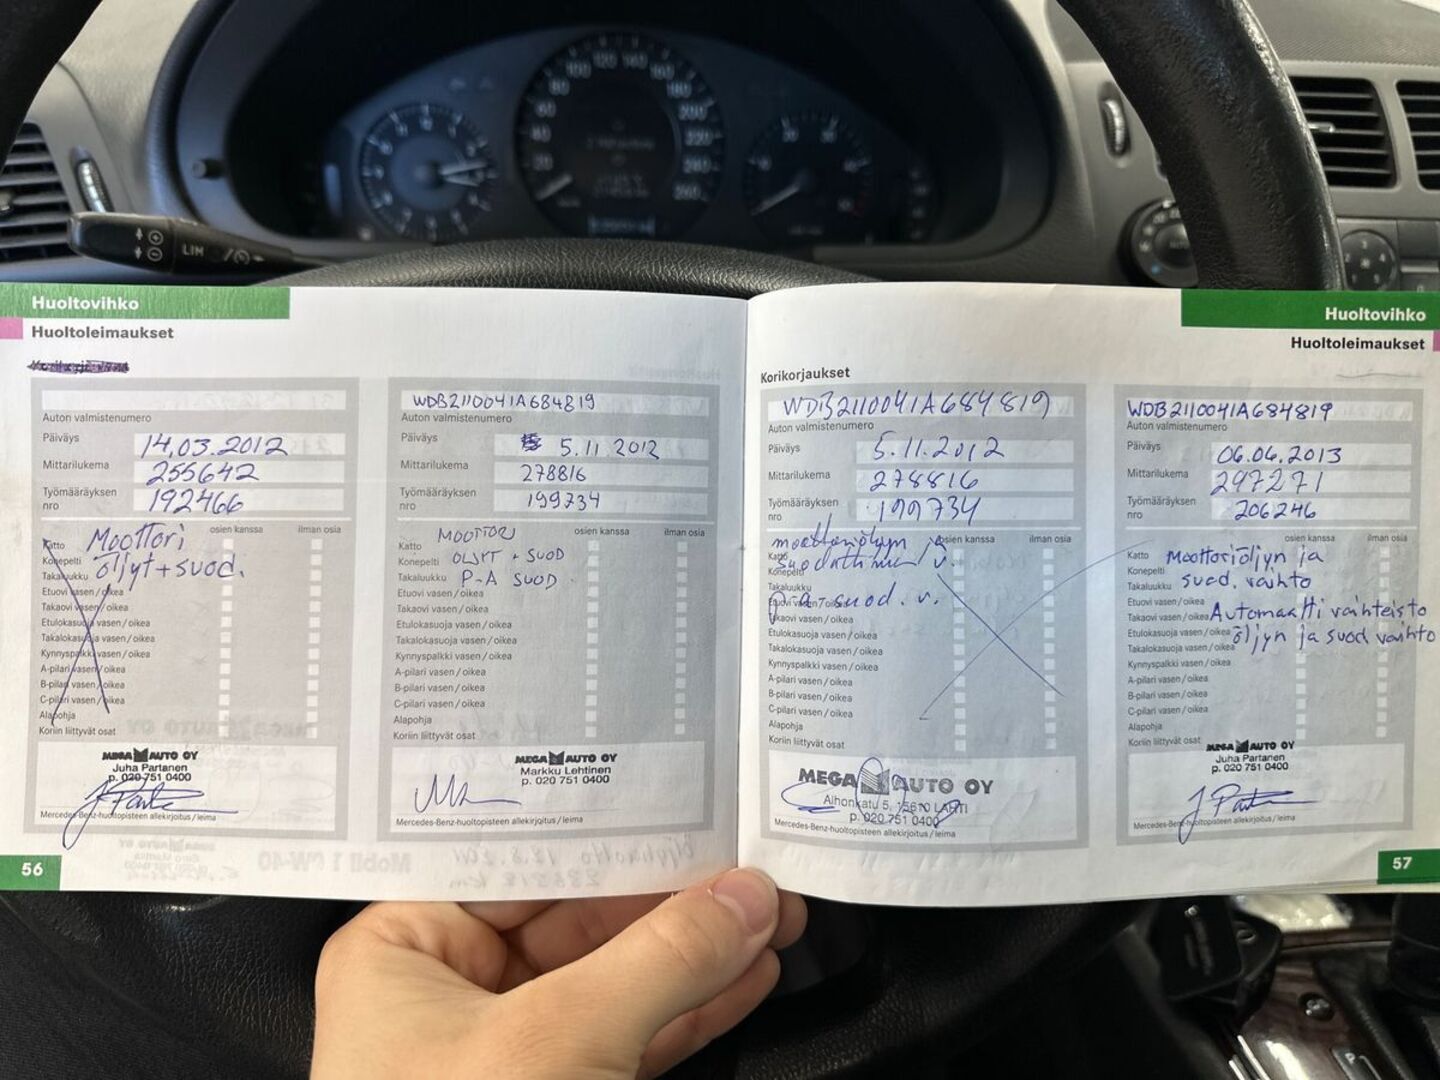 LIM
Huoltovihko
Huoltoleimaukset
Auton valmistenumero
Päiväys 14.03.2012
Mittarilukema 255642
Työmääräyksen
nro 192466
osien kanssa ilman osia
Moottori
öljyt + suod.
Katto
Konepelti
Takaluukku
Etuovi vasen/oikea
Takaovi vasen/oikea
Etulokasuoja vasen/oikea
Takalokasuoja vasen/oikea
Kynnyspalkki vasen/oikea
A-pilari vasen/oikea
B-pilari vasen/oikea
C-pilari vasen/oikea
Alapohja
Koriin liittyvät osat
MEGA AUTO OY
Juha Partanen
p. 020 751 0400
Mercedes-Benz-huoltopisteen allekirjoitus/leima
56
WDB2110041A684819
Auton valmistenumero
Päiväys 5.11.2012
Mittarilukema 278816
Työmääräyksen
nro 199734
osien kanssa ilman osia
MOOTTORI
ÖLJYT + SUOD
P-A SUOD.
Katto
Konepelti
Takaluukku
Etuovi vasen/oikea
Takaovi vasen/oikea
Etulokasuoja vasen/oikea
Takalokasuoja vasen/oikea
Kynnyspalkki vasen/oikea
A-pilari vasen/oikea
B-pilari vasen/oikea
C-pilari vasen/oikea
Alapohja
Koriin liittyvät osat
MEGA AUTO OY
Markku Lehtinen
p. 020 751 0400
Mercedes-Benz-huoltopisteen allekirjoitus/leima
Huoltovihko
Huoltoleimaukset
Korikorjaukset
WDB2110041A684819
Auton valmistenumero
Päiväys 5.11.2012
Mittarilukema 278816
Työmääräyksen
nro 199734
osien kanssa ilman osia
moottoriöljyn ja
suodattimen v.
p-a-suod. v.
Katto
Konepelti
Takaluukku
Etuovi vasen/oikea
Takaovi vasen/oikea
Etulokasuoja vasen/oikea
Takalokasuoja vasen/oikea
Kynnyspalkki vasen/oikea
A-pilari vasen/oikea
B-pilari vasen/oikea
C-pilari vasen/oikea
Alapohja
Koriin liittyvät osat
MEGA AUTO OY
Alhonkatu 5, 15610 LAHTI
p. 020 751 0400
Mercedes-Benz-huoltopisteen allekirjoitus/leima
WDB2110041A684819
Auton valmistenumero
Päiväys 06.06.2013
Mittarilukema 297271
Työmääräyksen
nro 206246
osien kanssa ilman osia
Moottoriöljyn ja
suod. vaihto
Automaatti vaihteisto
öljyn ja suod vaihto
Katto
Konepelti
Takaluukku
Etuovi vasen/oikea
Takaovi vasen/oikea
Etulokasuoja vasen/oikea
Takalokasuoja vasen/oikea
Kynnyspalkki vasen/oikea
A-pilari vasen/oikea
B-pilari vasen/oikea
C-pilari vasen/oikea
Alapohja
Koriin liittyvät osat
MEGA AUTO OY
Juha Partanen
p. 020 751 0400
Mercedes-Benz-huoltopisteen allekirjoitus/leima
57